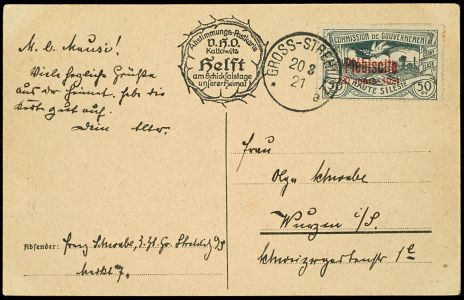 M. l. Mausi!
Viele herzliche Grüße
aus der Heimat. heb die
Karte gut auf.
Dein Alter.
Abstimmungs-Postkarte
V.H.O.
Kattowitz
Helft
am Schicksalstage
unserer Heimat
GROSS-STREHLITZ
20 3
21
a
COMMISSION DE GOUVERNEMENT
Plébiscite
20 mars 1921.
HAUTE SILESIE
50
Frau
Olga Schwabe
Wurzen i/S.
Schweizergartenstr 1e
Absender: Franz Schwabe, z. Zt. Gr. Strehlitz
Markt 7.